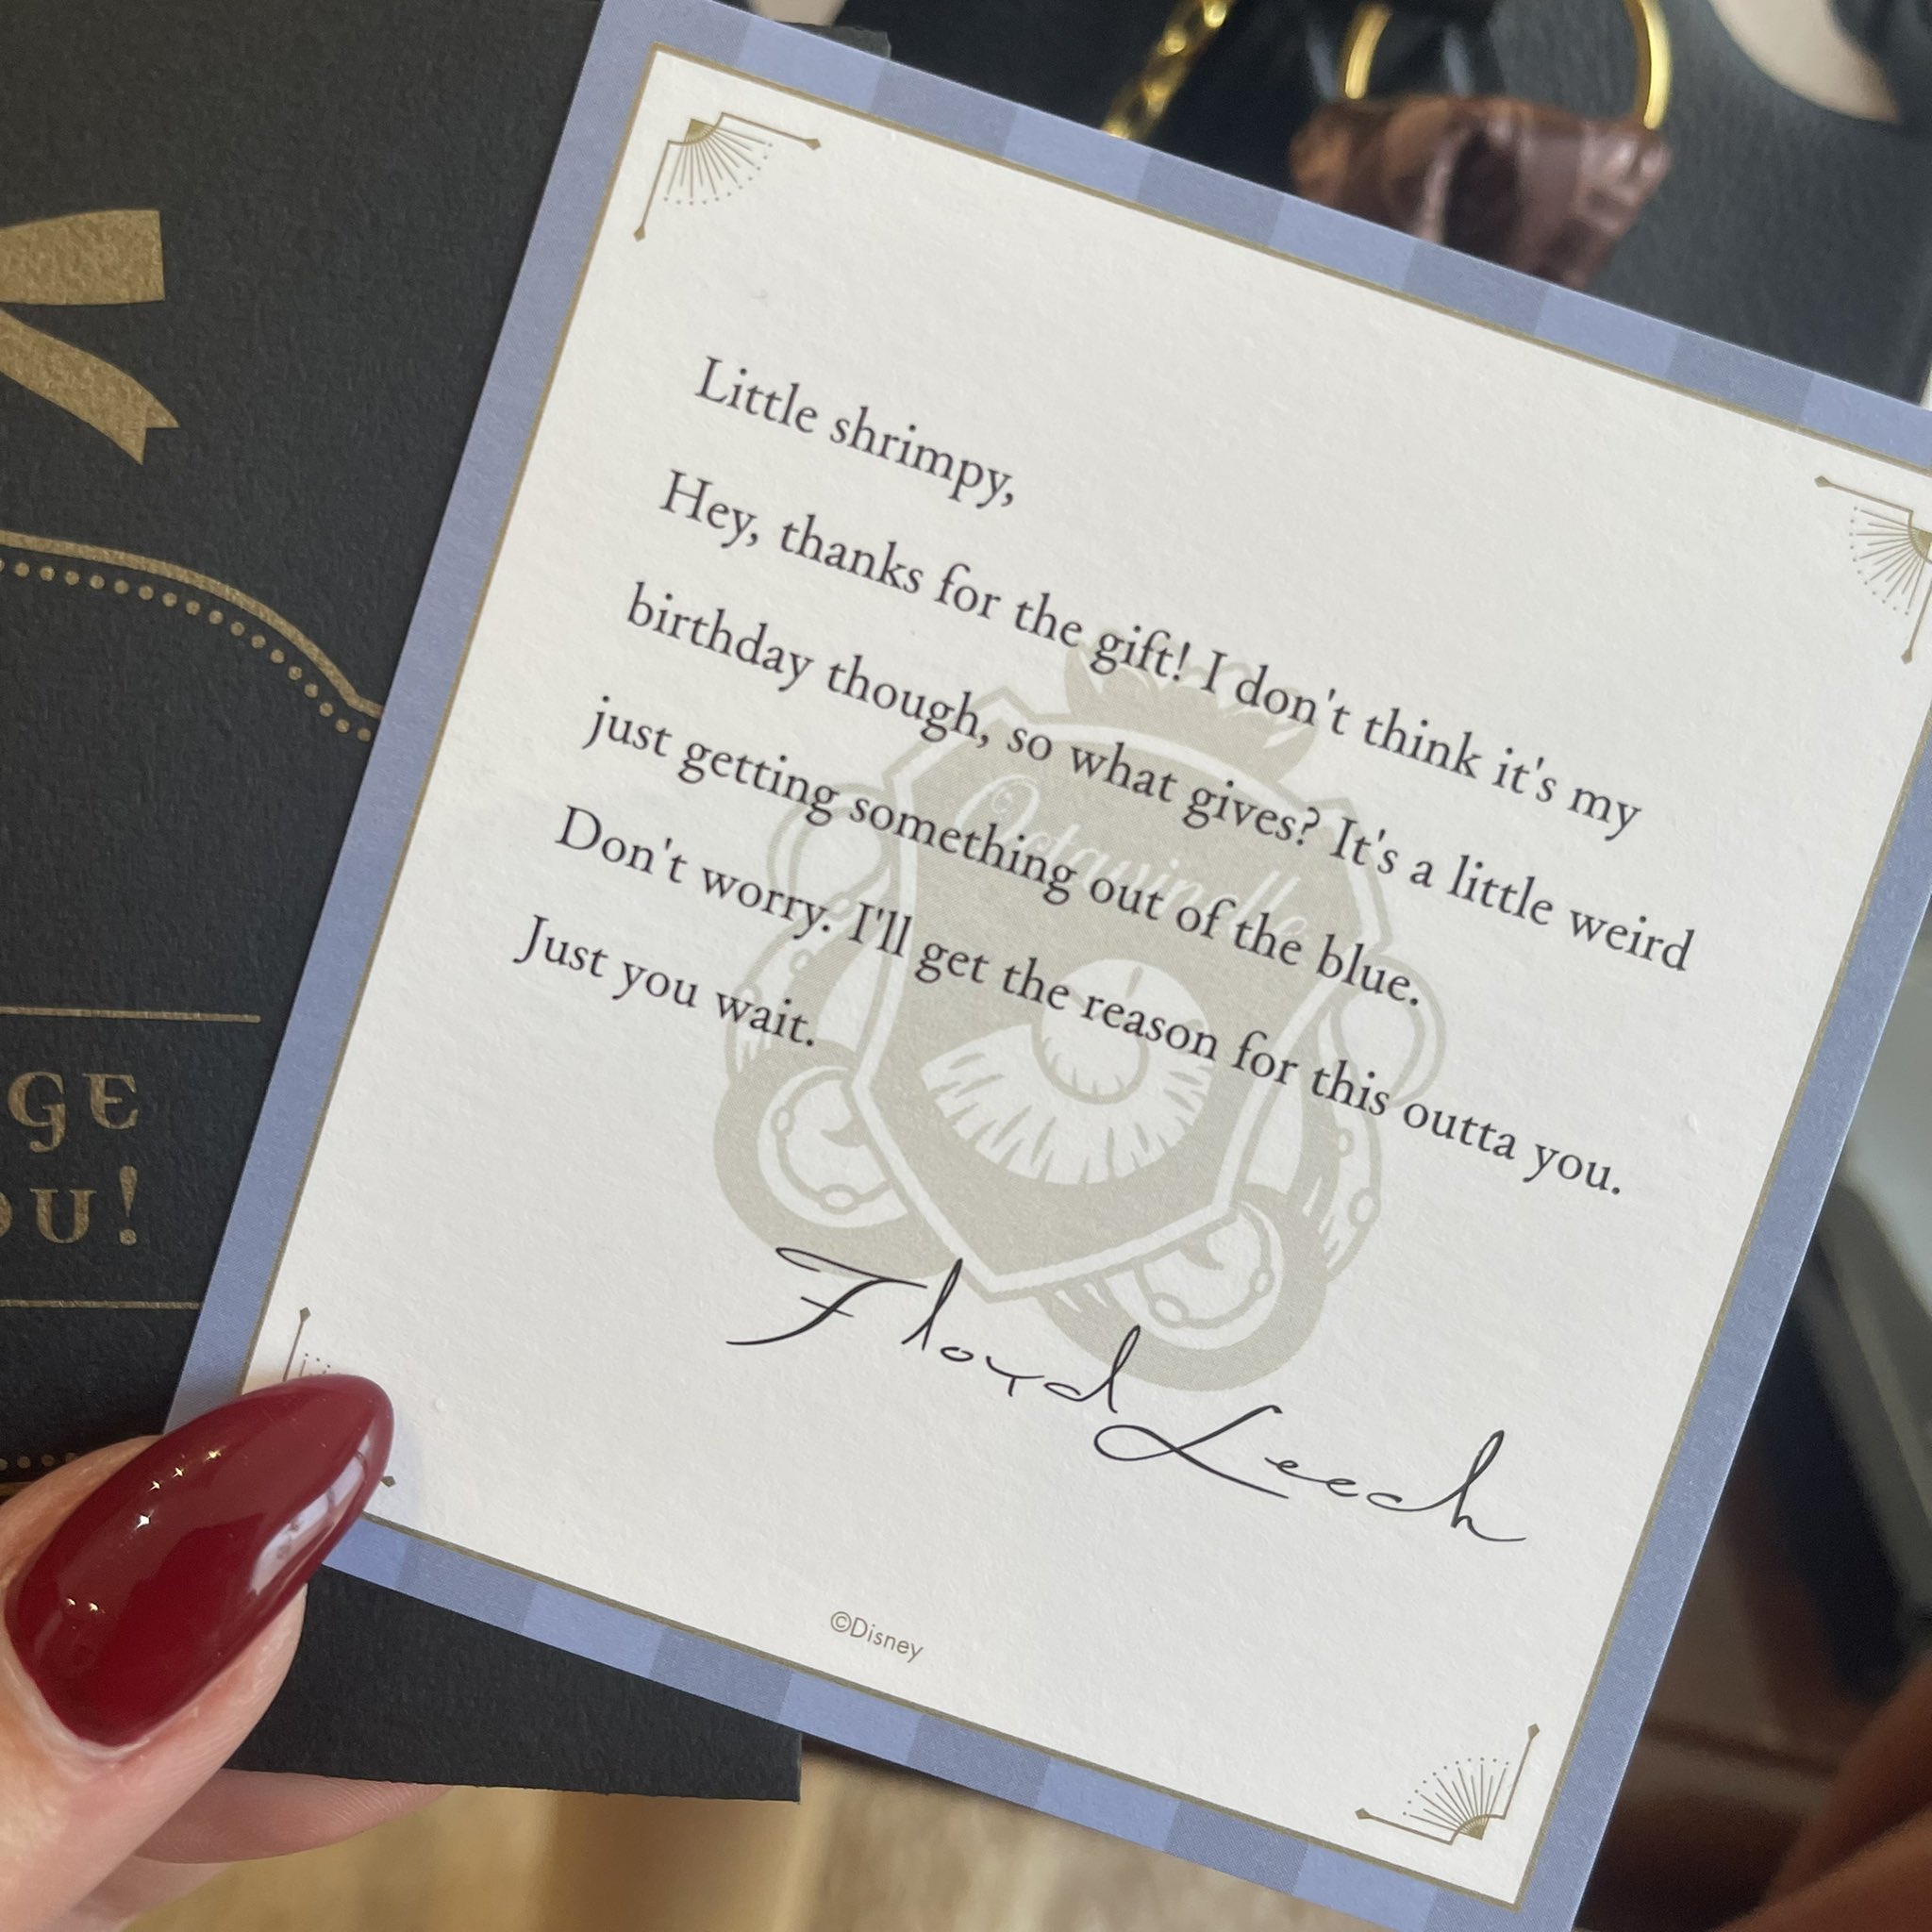 GE
OU!
Little shrimpy,
Hey, thanks for the gift! I don't think it's my
birthday though, so what gives? It's a little weird
just getting something out of the blue.
Don't worry. I'll get the reason for this outta you.
Just you wait.
Octavinelle
Floyd Leech
©Disney